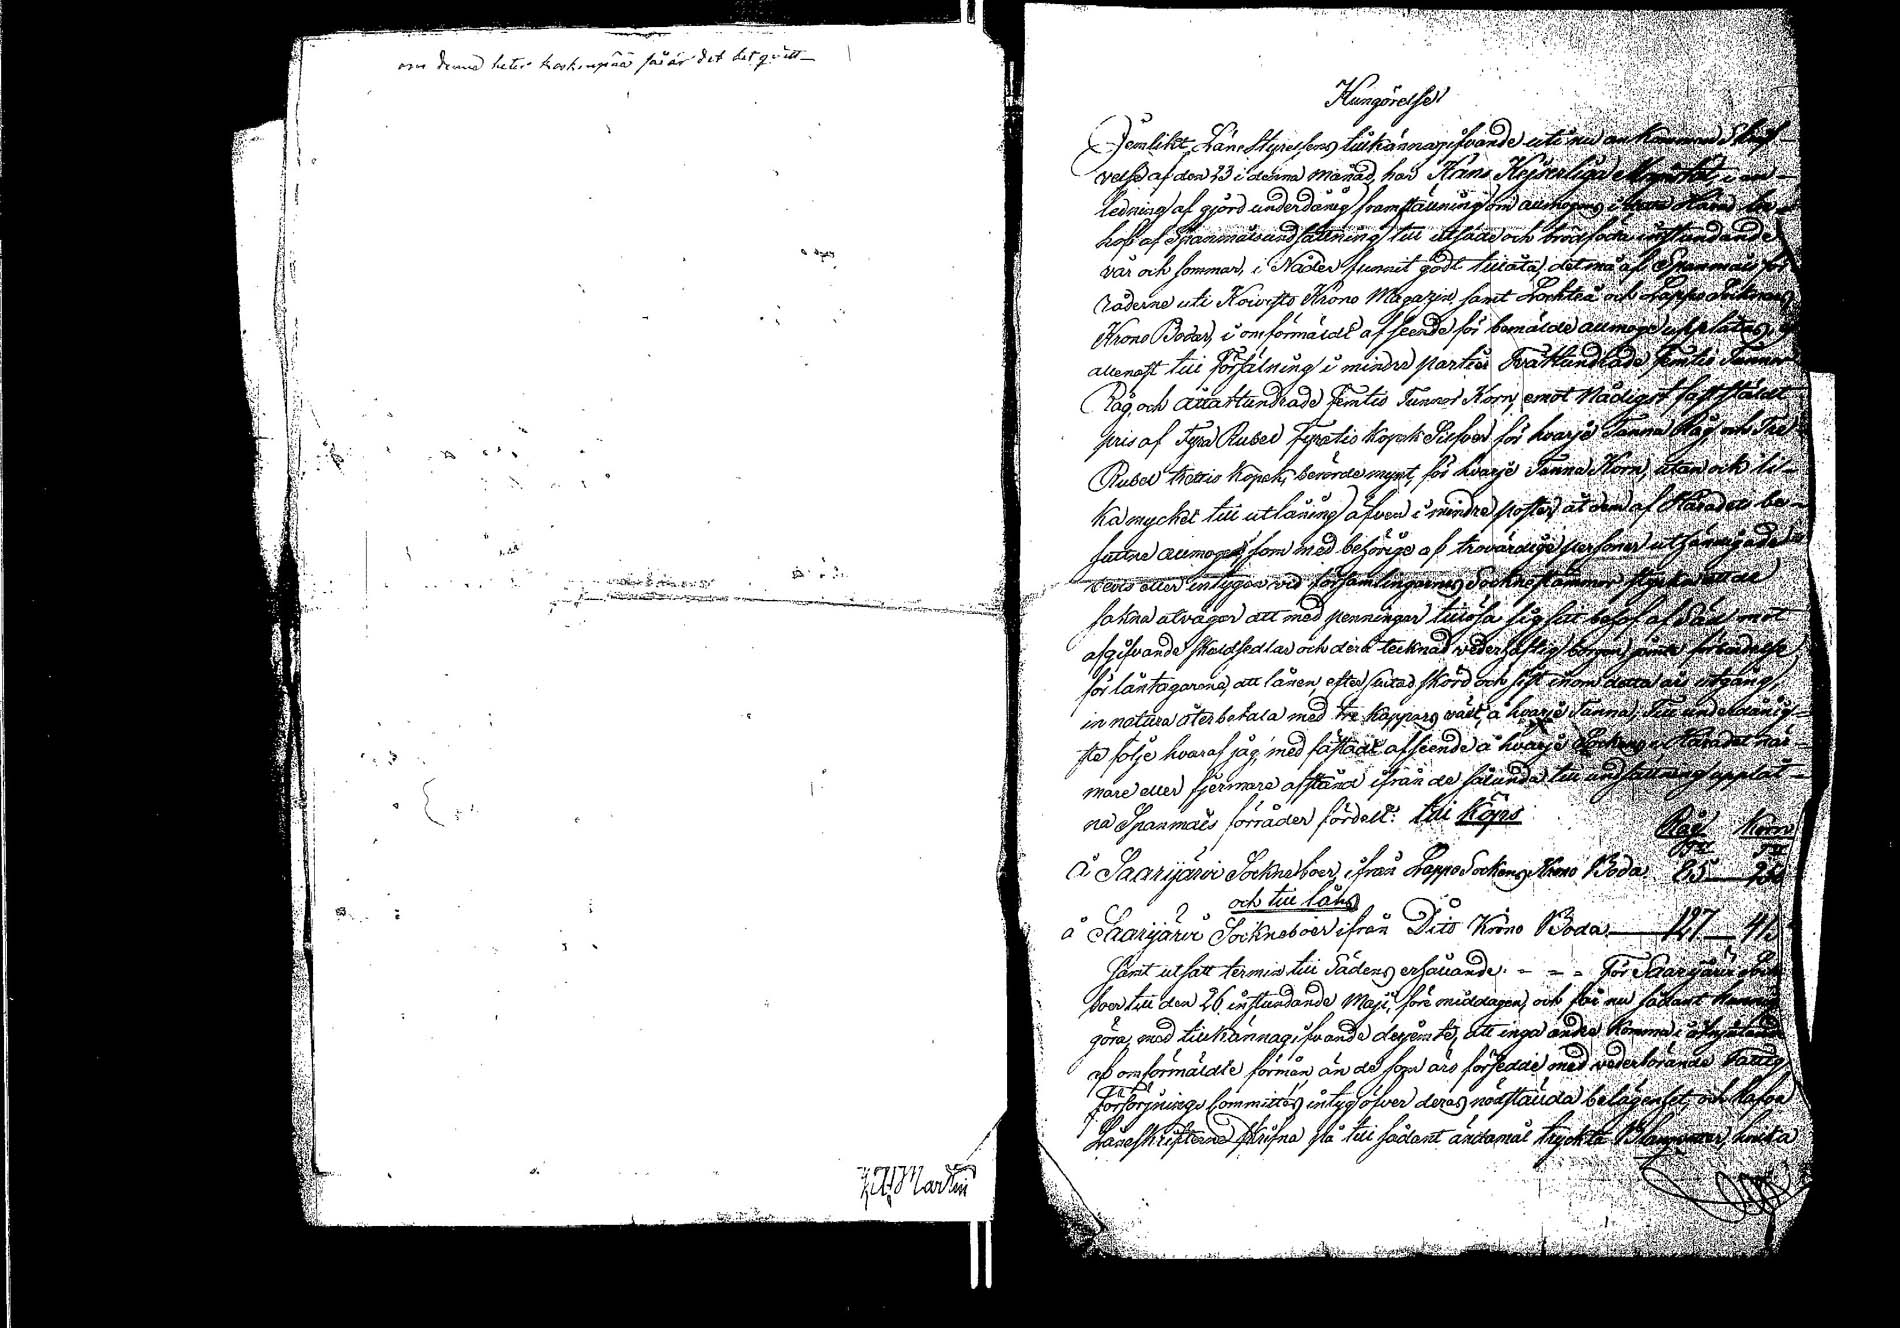 om denna heter Koskenpää så är det det qvitt
K A Martin
Kungörelse
Jemlikt Läne Styrelsens tillkännagifvande uti nu ankommen Skrif-
velse af den 23 i denna månad, har Hans Kejserliga Majestät i an-
ledning af gjord underdånig framställning om allmogens i Härad be-
hof af Spanmåls undsättning till utsäde och brödföda instundande
vår och sommar, i Nåder funnit godt tillåta, det må af Spanmåls för
råderne uti Koivisto Krono Magazin, samt Lochteå och Lappo Socknars
Krono Bodar, i omförmäldt afseende för bemälde allmoge upplåtas, ej
allenast till försälning i mindre partier Tvåhundrade Femtio Tunnor
Råg, och Åttahundrade Femtio Tunnor Korn, emot Nådigst fastställdt
pris af Fyra Rubel Fyratio Kopek Silfver för hvarje Tunna Råg och Tre
Rubel trettio Kopek, berörde mynt, för hvarje Tunna Korn, utan ock li-
ka mycket till utlåning äfven i mindre poster, åt dem af Häradets be-
suttne allmoge, som med behörige af trovärdige personer utfärdade
bevis eller intygen vid församlingarnes Sockne stämmor styrka att de
sakna utvägar att med penningar tillösa sig sitt behof af Säd mot
afgifvande skuldsedlar och derå tecknad vederhäftig borgen, jämte förbindelse
för låntagarene, att lånen, efter slutad skörd och sist inom detta års utgång,
in natura återbetala med tre kappars växt, å hvarje Tunna; Till underdånig-
ste följe hvaraf jag, med fästadt afseende å hvarje Sockens i Häradet när-
mare eller fjermare afstånd ifrån de sålunda till undsättning upplåt-
na Spanmåls förråder fördelt: till Köps
Råg Korn
Tr Tr
Å Saarijärvi Sockneboer, ifrån Lappo Sockens Krono Boda 85
och till låns
å Saarijärvi Sockneboer ifrån Dito Krono Boda 127 41
Samt utsatt termin till Sädens erhållande. - - - För Saarijärvi Sock
boer till den 26 instundande Maji, före middagen, och får nu sådant kung
göra, med tillkännagifvande derjemte, att inga andra komma i åtnjutande
af omförmäldte förmån än de som äro försedde med vederbörande Fattig
försörjnings Committés intyg öfver deras nödstälda belägenhet, och böra
Låneskrifterne skrifna på till sådant ändamål tryckta Blanquetter, hvilka